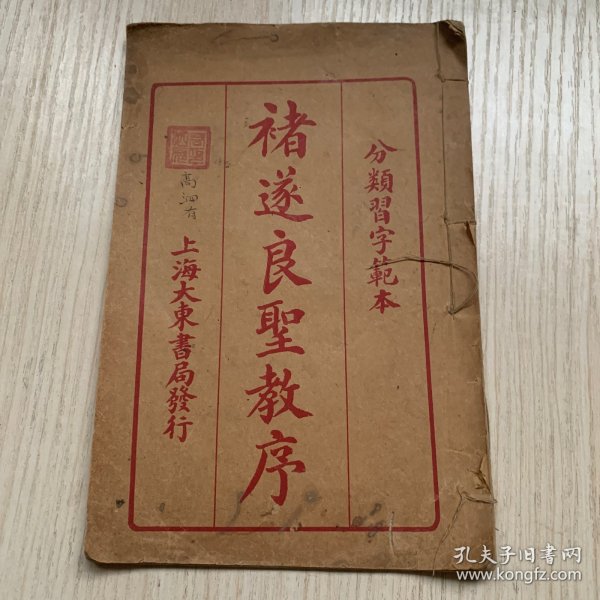 分類習字範本
褚遂良聖教序
上海大東書局發行
孔夫子旧書网
www.kongfz.com